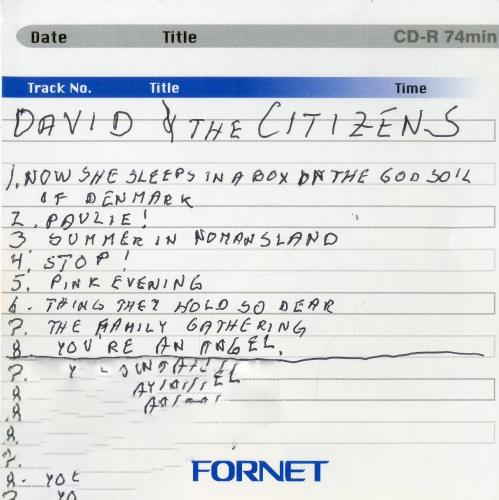 Date Title CD-R 74min
Track No. Title Time
DAVID & THE CITIZENS
1. NOW SHE SLEEPS IN A BOX IN THE GOD SOIL
OF DENMARK
2. PAULIE!
3 SUMMER IN NOMANSLAND
4. STOP!
5. PINK EVENING
6. THING THEY HOLD SO DEAR
7. THE FAMILY GATHERING
8. YOU'RE AN ANGEL.
7.
8
.8
8.
7.
8.
FORNET